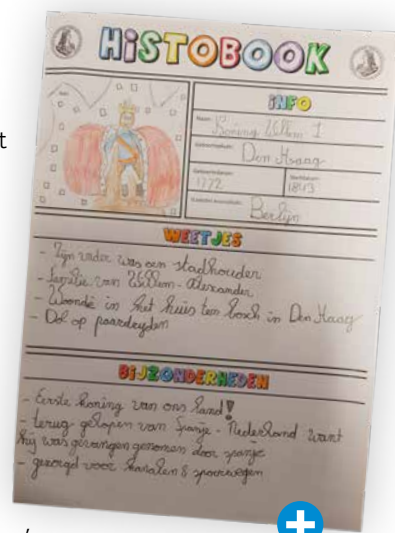 HISTOBOOK
INFO
Naam: Koning Willem I
Geboorteplaats: Den Haag
Geboortedatum: Sterfdatum:
1772 1843
Berlijn
WEETJES
- Zijn vader was een stadhouder
- familie van Willem-Alexander
- Woonde in het huis ten bosch in Den Haag
- Dol op paardrijden
BIJZONDERHEDEN
- Eerste koning van ons land!
- terug gelopen van Spanje - Nederland want
hij was gevangen genomen door spanje
- gezorgd voor kanalen & spoorwegen